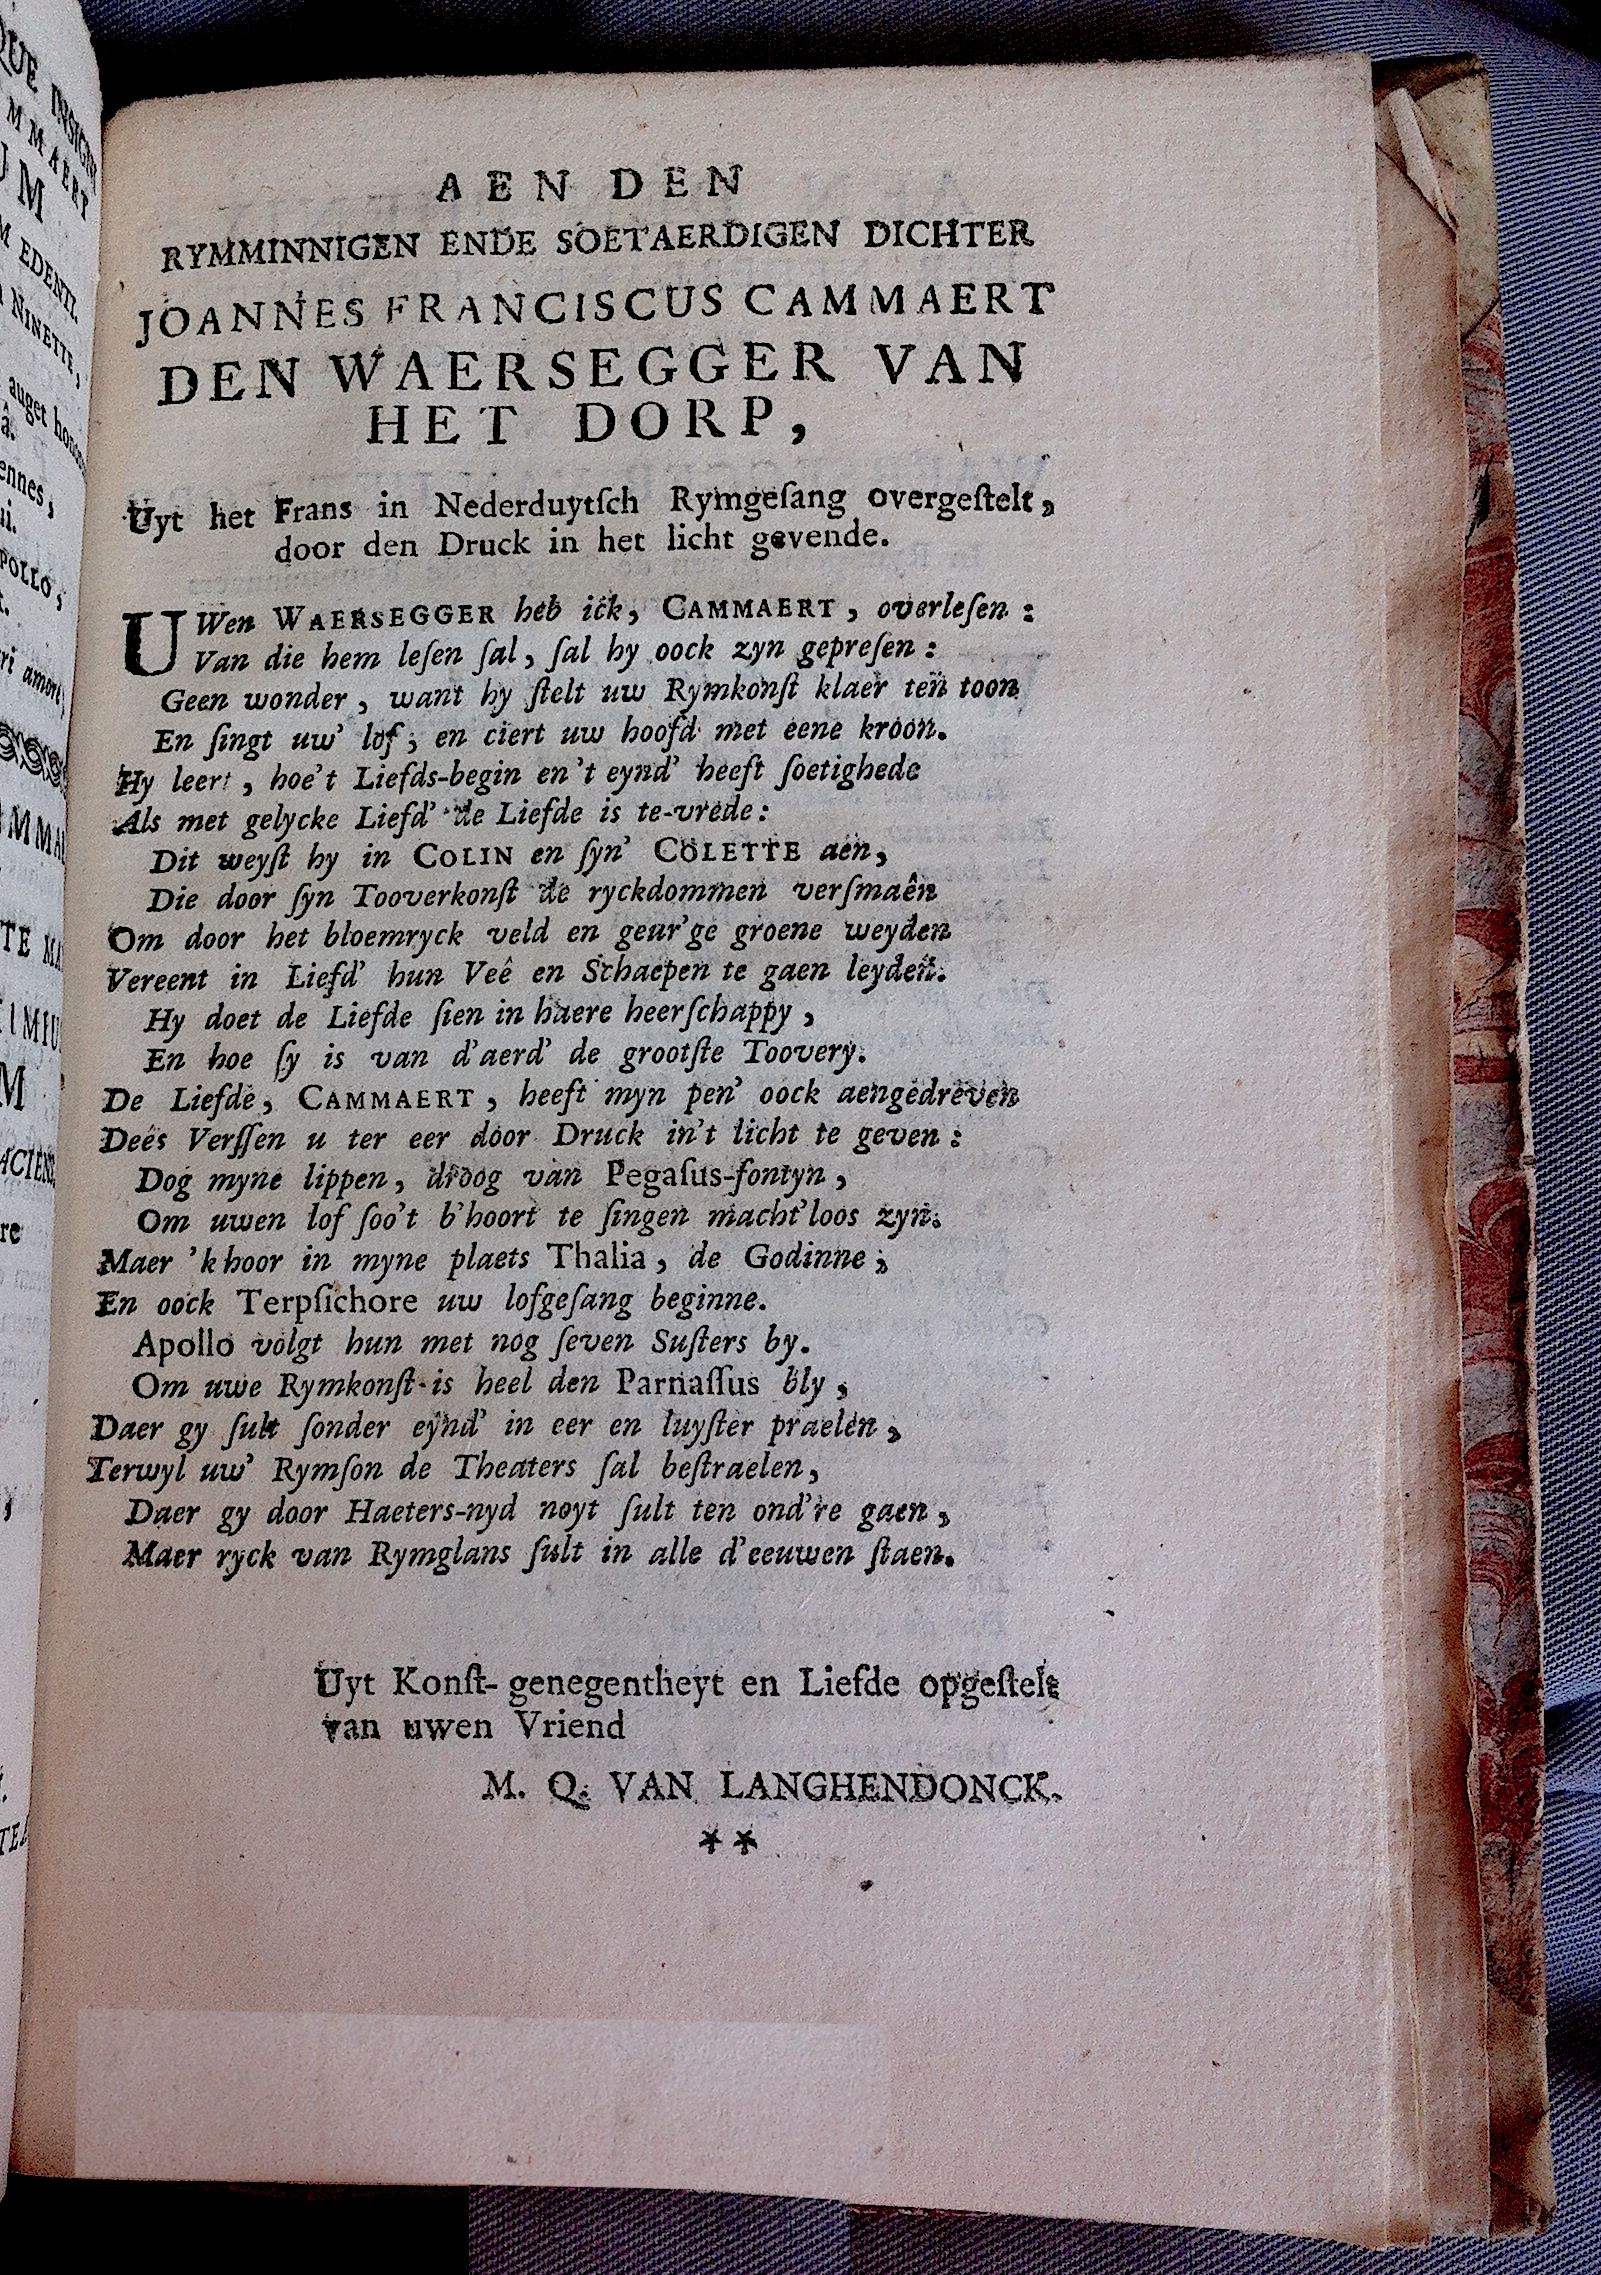 QUE INSIGNI
MMAERT
UM
M EDENTI.
NINETTE,
auget hono
â.
ennes,
ui.
POLLO,
t.
ri amore,
MMAE
TE MA
XIMIU
M
ACIEND
re
TEA
AEN DEN
RYMMINNIGEN ENDE SOETAERDIGEN DICHTER
JOANNES FRANCISCUS CAMMAERT
DEN WAERSEGGER VAN
HET DORP,
Uyt het Frans in Nederduytſch Rymgeſang overgeſtelt,
door den Druck in het licht gevende.
UWen WAERSEGGER heb ick, CAMMAERT, overleſen:
Van die hem leſen ſal, ſal hy oock zyn gepreſen:
Geen wonder, want hy ſtelt uw Rymkonſt klaer ten toon
En ſingt uw' lof; en ciert uw hoofd met eene kroon.
Hy leert, hoe't Liefds-begin en't eynd' heeft ſoetighede
Als met gelycke Liefd' de Liefde is te-vrede:
Dit weyſt hy in COLIN en ſyn' COLETTE aen,
Die door ſyn Tooverkonſt de ryckdommen verſmaên
Om door het bloemryck veld en geur'ge groene weyden
Vereent in Liefd' hun Veê en Schaepen te gaen leyden.
Hy doet de Liefde ſien in haere heerſchappy,
En hoe ſy is van d'aerd' de grootſte Toovery.
De Liefde, CAMMAERT, heeft myn pen' oock aengedreven
Deês Verſſen u ter eer door Druck in't licht te geven:
Dog myne lippen, droog van Pegaſus-fontyn,
Om uwen lof ſoo't b'hoort te ſingen macht'loos zyn.
Maer 'k hoor in myne plaets Thalia, de Godinne;
En oock Terpſichore uw lofgeſang beginne.
Apollo volgt hun met nog ſeven Suſters by.
Om uwe Rymkonſt is heel den Parnaſſus bly,
Daer gy ſult ſonder eynd' in eer en luyſter praelen,
Terwyl uw' Rymſon de Theaters ſal beſtraelen,
Daer gy door Haeters-nyd noyt ſult ten ond're gaen,
Maer ryck van Rymglans ſult in alle d'eeuwen ſtaen.
Uyt Konſt-genegentheyt en Liefde opgeſtelt
van uwen Vriend
M. Q. VAN LANGHENDONCK.
**